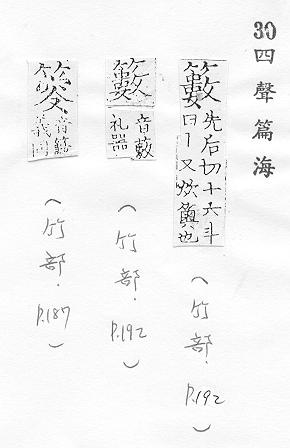 30四聲篇海
籔先后切十六斗
曰丨又炊也
(竹部.P.192)
音藪
礼器
(竹部.P.192)
音
義同
(竹部.P.187)